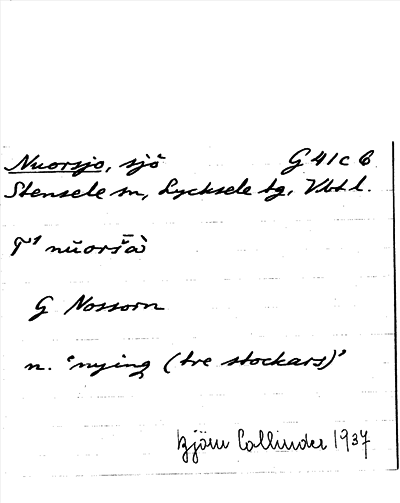 Nuorsjo, sjö G 41 c b
Stensele sn, Lycksele tg, Vbtl.
nŭorša̅̀
G Nossorn
n. 'nying (tre stockars)'
Björn Collinder 1937